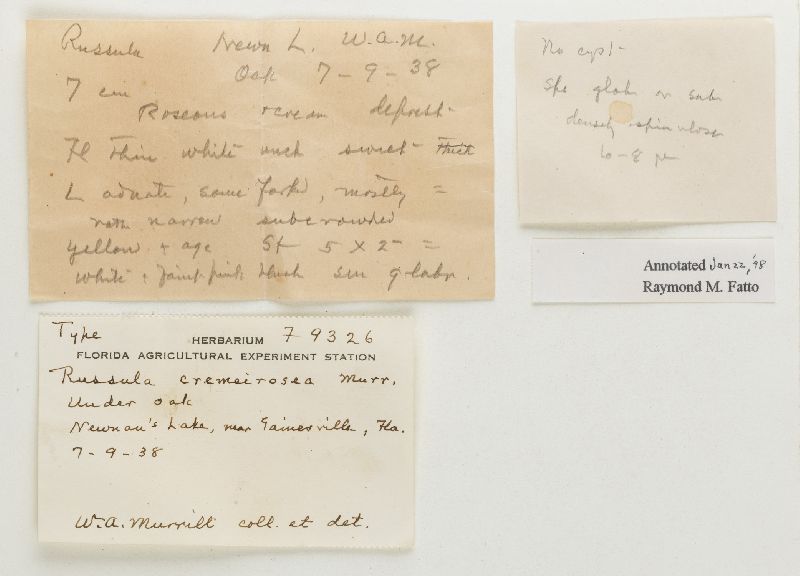 Russula Newn L. W.A.M.
Oak 7-9-38
7 cm
Roseous + cream depresst-
Fl thin white unch sweet thick
L adnate, some forked, mostly =
rath narrow subcrowded
yellow + age St 5 X 2- =
white + faint pink blush sm glabr.
No cys!-
Sps glob or sub
densely spinulose
6-8 µ
Annotated Jan 22, '98
Raymond M. Fatto
Type
HERBARIUM F 9326
FLORIDA AGRICULTURAL EXPERIMENT STATION
Russula cremeirosea Murr.
Under oak
Newnan's Lake, near Gainesville, Fla.
7-9-38
W.A. Murrill coll. et det.